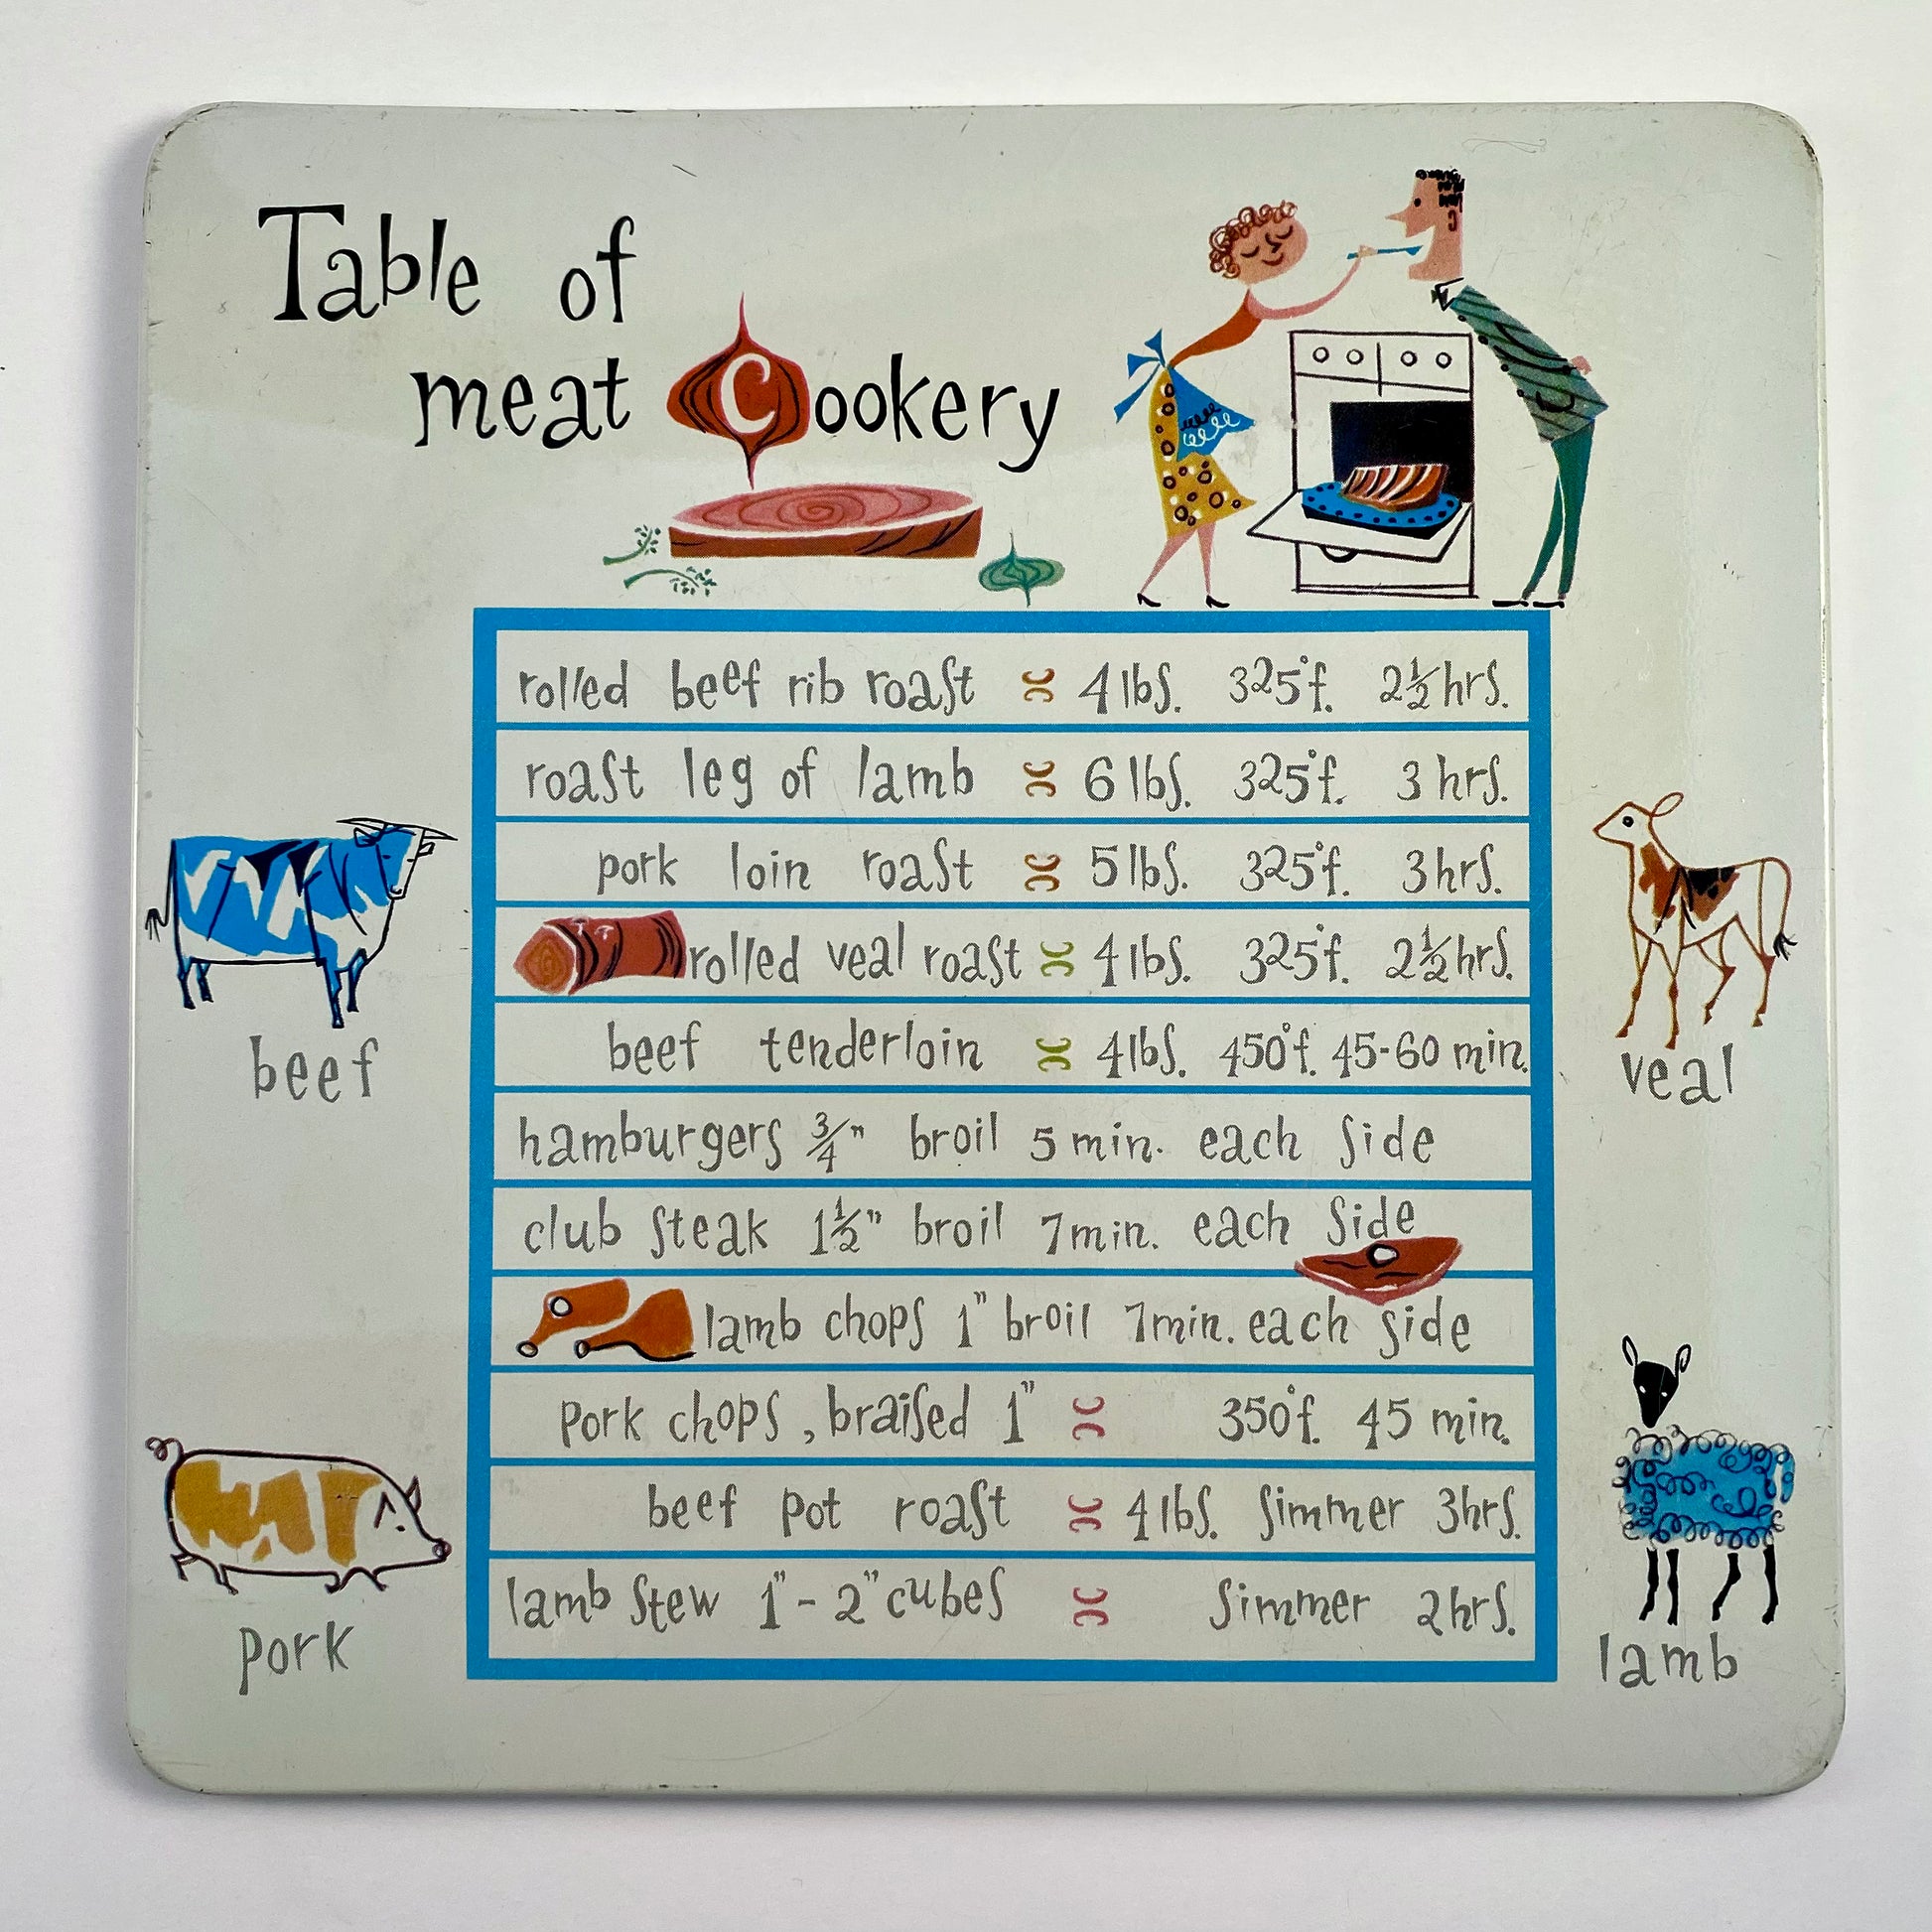 Table of
meat Cookery
rolled beef rib roast 4 lbs. 325°f. 2½ hrs.
roast leg of lamb 6 lbs. 325°f. 3 hrs.
pork loin roast 5 lbs. 325°f. 3 hrs.
rolled veal roast 4 lbs. 325°f. 2½ hrs.
beef tenderloin 4 lbs. 450°f. 45-60 min.
hamburgers ¾" broil 5 min. each side
club steak 1½" broil 7 min. each side
lamb chops 1" broil 7 min. each side
pork chops, braised 1" 350°f. 45 min.
beef pot roast 4 lbs. simmer 3 hrs.
lamb stew 1" - 2" cubes simmer 2 hrs.
beef
veal
pork
lamb